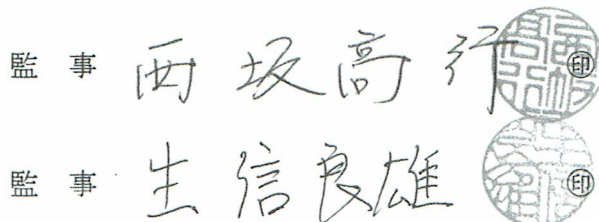 監 事 西 坂 高 行 ㊞
監 事 生 信 良 雄 ㊞